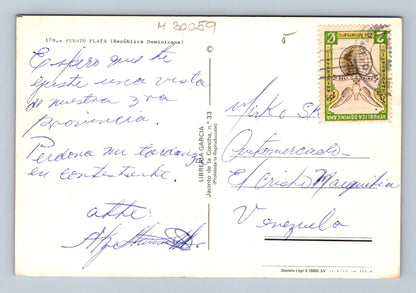 H 30059
189.- PUERTO PLATA (República Dominicana)
Espero que te
guste una vista
de nuestra 3ra
Provincia.
Perdona mi tardanza
en contestarte.
atte:
©
LIBRERIA GARCIA
Jacinto de la Concha, n.º 33
(Prohibida la Reproducción)
2 ¢
REPUBLICA DOMINICANA
Mirko
Automercado
El Cristo Maiquetia
Venezuela
Depósito Legal B. XV
PRINTED IN SPAIN